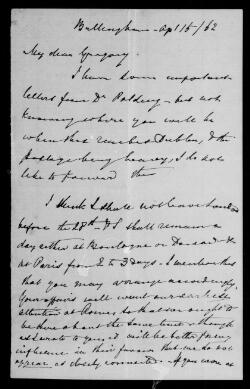 Bullingham - Apl 15 - /62
My dear Gregory.
I have some important
letters from Dr Polding - but not
knowing where you will be
when this reaches Dublin, & the
postage being heavy, I do not
like to forward them
I think I shall not leave London
before the 28th & I shall remain a
day either at Boulogne or Douai - &
at Paris from 2 to 3 Days. I mention this
that you may arrange accordingly.
Your affairs will want our
attention at Rome, so that we ought to
be there about the same time - though
as I wrote to you, it will be better for my
influence in their favour that we do not
appear as closely connected. If you were at